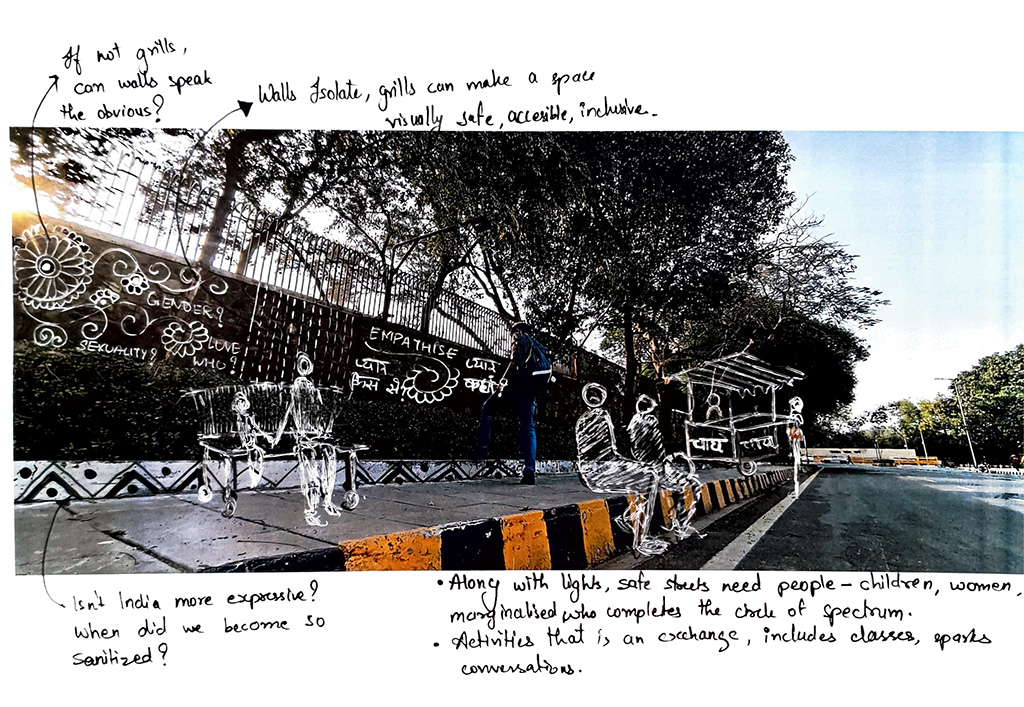 If not grills,
can walls speak
the obvious?
Walls Isolate, grills can make a space
visually safe, accesible, inclusive.
GENDER?
SEXUALITY?
LOVE
WHO?
EMPATHISE
प्यार
किस से?
प्यार
कहाँ?
चाय चाय
Isn't India more expressive?
When did we become so
sanitized?
• Along with lights, safe streets need people – children, women,
marginalised who completes the circle of spectrum.
• Activities that is an exchange, includes classes, sparks
conversations.